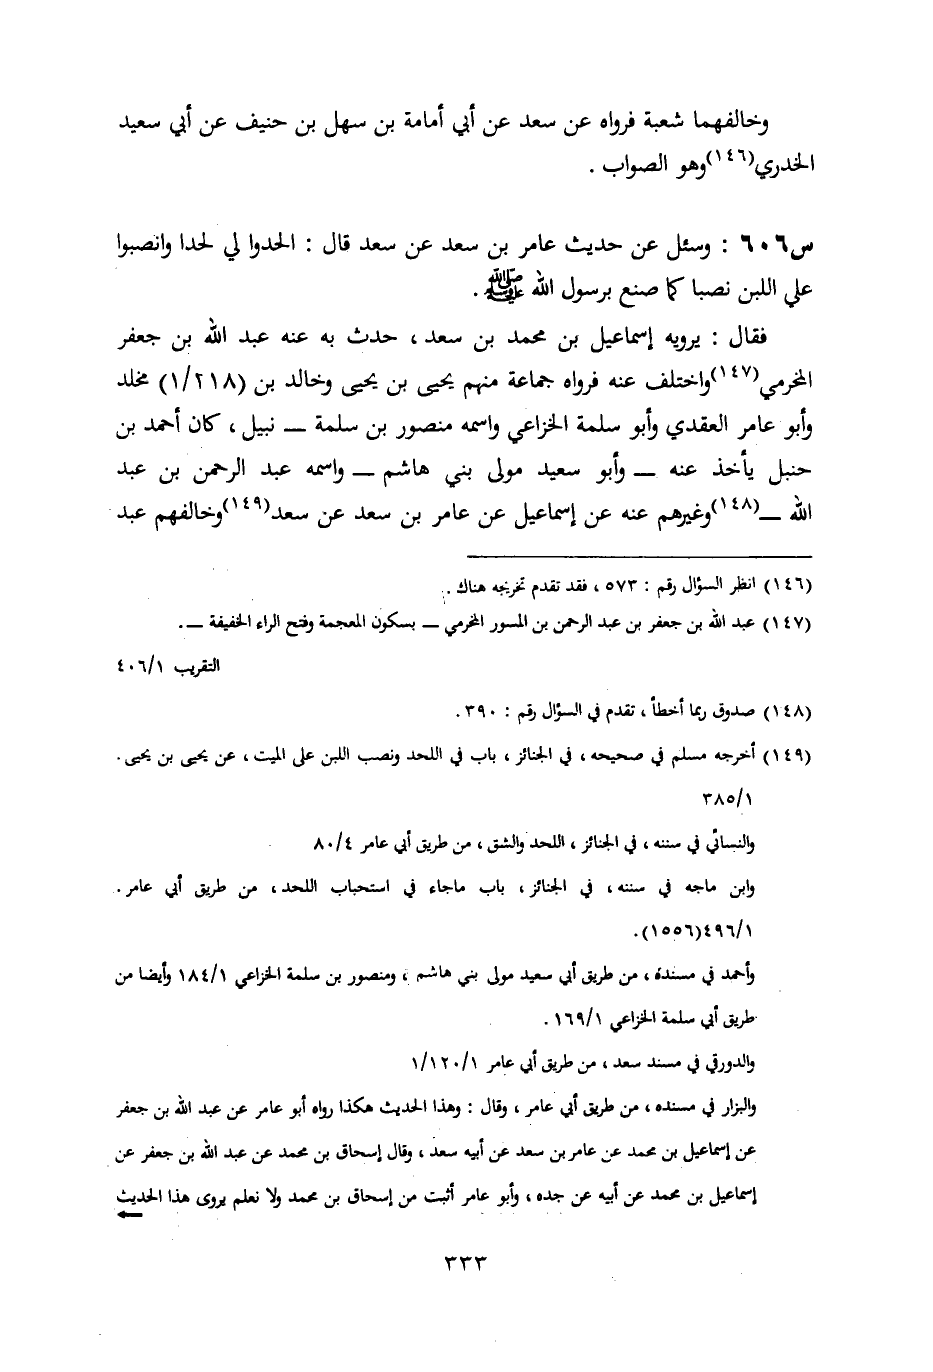 وخالفهما شعبة فرواه عن سعد عن أبي أمامة بن سهل بن حنيف عن أبي سعيد
الخدري(١٤٦)وهو الصواب .
س٦٠٦ : وسئل عن حديث عامر بن سعد عن سعد قال : الحدوا لي لحدا وانصبوا
علي اللبن نصبا كما صنع برسول الله ﷺ .
فقال : يرويه إسماعيل بن محمد بن سعد ، حدث به عنه عبد الله بن جعفر
المخرمي(١٤٧)واختلف عنه فرواه جماعة منهم يحيى بن يحيى وخالد بن (١/٢١٨) مخلد
وأبو عامر العقدي وأبو سلمة الخزاعي واسمه منصور بن سلمة ــ نبيل ، كان أحمد بن
حنبل يأخذ عنه ــ وأبو سعيد مولى بني هاشم ــ واسمه عبد الرحمن بن عبد
الله ــ(١٤٨)وغيرهم عنه عن إسماعيل عن عامر بن سعد عن سعد(١٤٩)وخالفهم عبد
(١٤٦) انظر السؤال رقم : ٥٧٣ ، فقد تقدم تخريجه هناك .
(١٤٧) عبد الله بن جعفر بن عبد الرحمن بن المسور المخرمي ــ بسكون المعجمة وفتح الراء الخفيفة ــ .
التقريب ٤٠٦/١
(١٤٨) صدوق ربما أخطأ ، تقدم في السؤال رقم : ٣٩٠ .
(١٤٩) أخرجه مسلم في صحيحه ، في الجنائز ، باب في اللحد ونصب اللبن على الميت ، عن يحيى بن يحيى .
٣٨٥/١
والنسائي في سننه ، في الجنائز ، اللحد والشق ، من طريق أبي عامر ٨٠/٤
وابن ماجه في سننه ، في الجنائز ، باب ماجاء في استحباب اللحد ، من طريق أبي عامر .
٤٩٦/١(١٥٥٦).
وأحمد في مسنده ، من طريق أبي سعيد مولى بني هاشم ، ومنصور بن سلمة الخزاعي ١٨٤/١ وأيضا من
طريق أبي سلمة الخزاعي ١٦٩/١ .
والدورقي في مسند سعد ، من طريق أبي عامر ١/١٢٠/١
والبزار في مسنده ، من طريق أبي عامر ، وقال : وهذا الحديث هكذا رواه أبو عامر عن عبد الله بن جعفر
عن إسماعيل بن محمد عن عامر بن سعد عن أبيه سعد ، وقال إسحاق بن محمد عن عبد الله بن جعفر عن
إسماعيل بن محمد عن أبيه عن جده ، وأبو عامر أثبت من إسحاق بن محمد ولا نعلم يروى هذا الحديث
٣٣٣